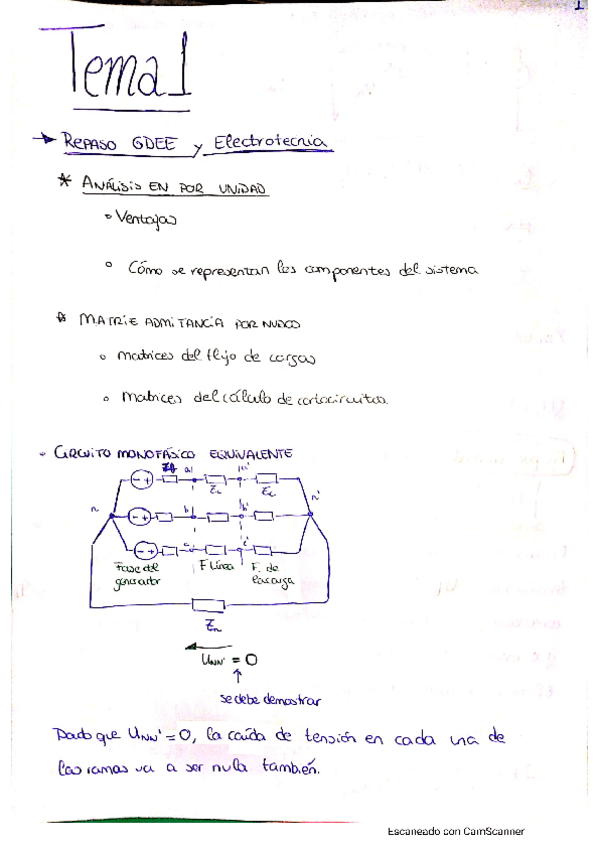 1
Tema 1
→ REPASO GDEE y Electrotecnia
* ANÁLISIS EN POR UNIDAD
• Ventajas
• Cómo se representan los componentes del sistema
* MATRIZ ADMITANCIA POR NUDOS
• matrices del flujo de cargas
• matrices del cálculo de cortocircuitos
• CIRCUITO MONOFÁSICO EQUIVALENTE
a a'
n - + ZL Zc n'
- + b b'
- + c c'
Fase del generador F Línea F. de la carga
Zn
UNN' = 0
↑
se debe demostrar
Dado que UNN' = 0, la caída de tensión en cada una de
las ramas va a ser nula también.
Escaneado con CamScanner